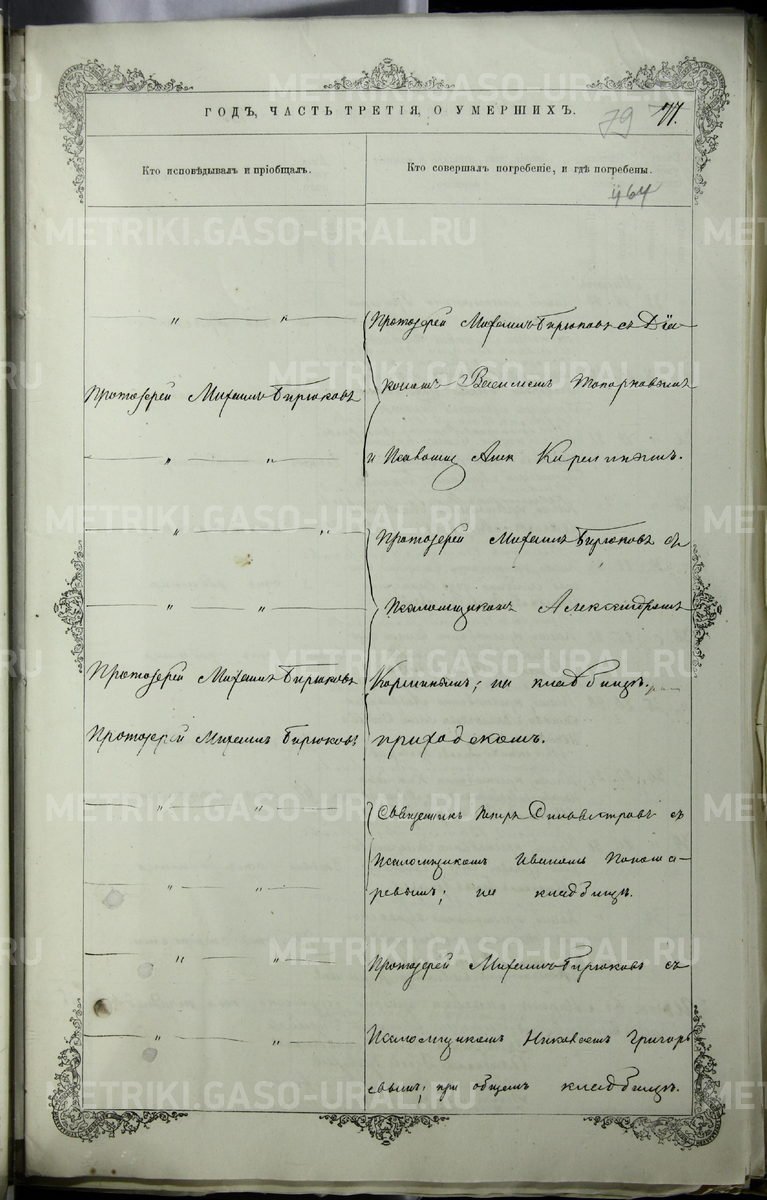 ГОДЪ, ЧАСТЬ ТРЕТІЯ, О УМЕРШИХЪ.
79 77.
Кто исповѣдывалъ и пріобщалъ.
Кто совершалъ погребеніе, и гдѣ погребены.
464
" "
Протоіерей Михаилъ Бирюковъ
" "
" "
" "
Протоіерей Михаилъ Бирюковъ
Протоіерей Михаилъ Бирюковъ
" "
" "
" "
" "
Протоіерей Михаилъ Бирюковъ съ Діа-
кономъ Василіемъ Топорковымъ
и
Протоіерей Михаилъ Бирюковъ съ
Псаломщикомъ Александромъ
на кладбищѣ
приходскомъ.
Священникъ Петръ съ
Псаломщикомъ Иваномъ Понома-
ревымъ; на кладбищѣ.
Протоіерей Михаилъ Бирюковъ съ
Псаломщикомъ Николаемъ Григорь
евымъ; при общемъ кладбищѣ.
METRIKI.GASO-URAL.RU